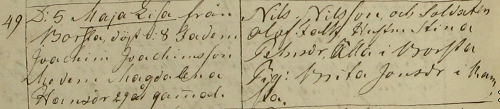 49
D: 5 Maja Lisa från
Borsta, döpt d: 8 Fadern
Joachim Joachimsson
Modern Magdalena
Hansdr gammal.
Nils Nilsson och Soldaten
Olof Hustru Stina
i Borsta
Pig: Brita Jonsdr i
sta.